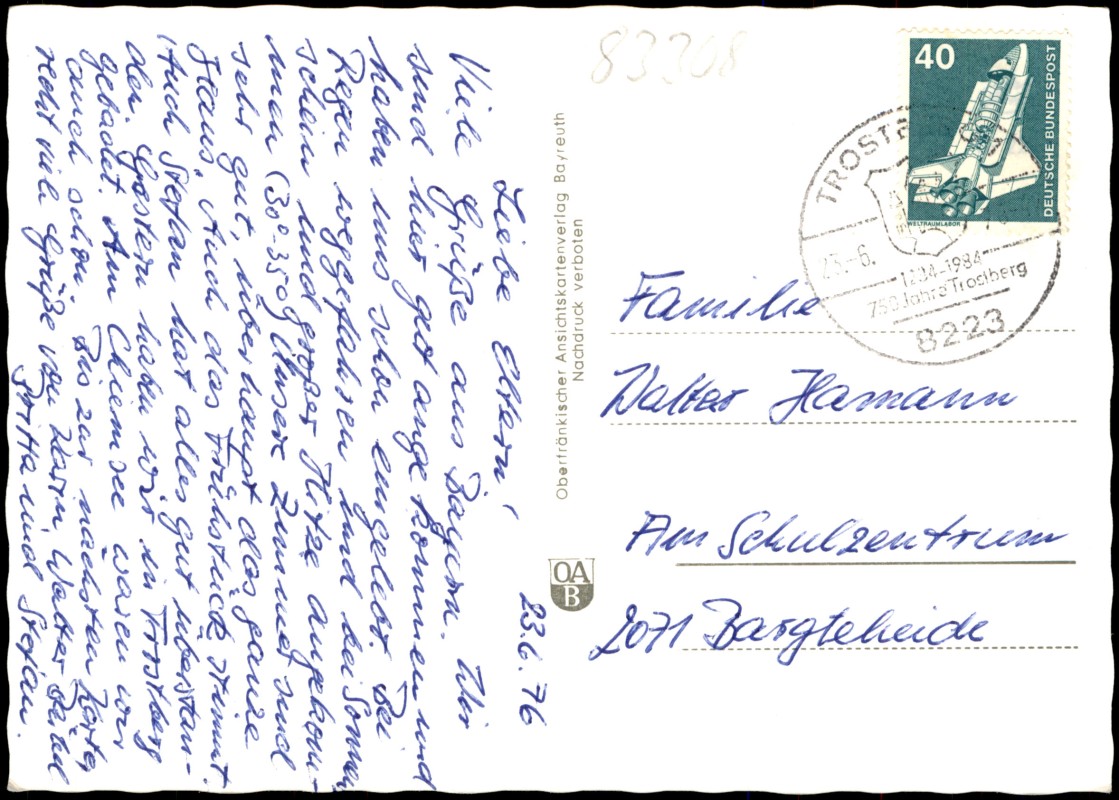 23.6.76
Liebe Eltern,
Viele Grüße aus Bayern. Wir
sind hier gut angekommen und
haben uns schon eingelebt. Bei
Regen weggefahren und bei Sonnen
schein und großer Hitze angekom-
men (30-35°) Unsere Zimmer sind
sehr gut, überhaupt das ganze
Haus. Auch das Frühstück stimmt.
Auch Stefan hat alles gut überstan-
den. Gestern haben wir in Trostberg
gebadet. Am Chiemsee waren wir
auch schon. Bis zur nächsten Karte
recht viele Grüße von Karin Walter
Britta und Stefan.
Oberfränkischer Ansichtskartenverlag Bayreuth
Nachdruck verboten
OAB
83308
40
DEUTSCHE BUNDESPOST
WELTRAUMLABOR
23.-6.
1234-1984
750 Jahre Trostberg
8223
Familie
Walter Hamann
Am Schulzentrum
2071 Bargteheide